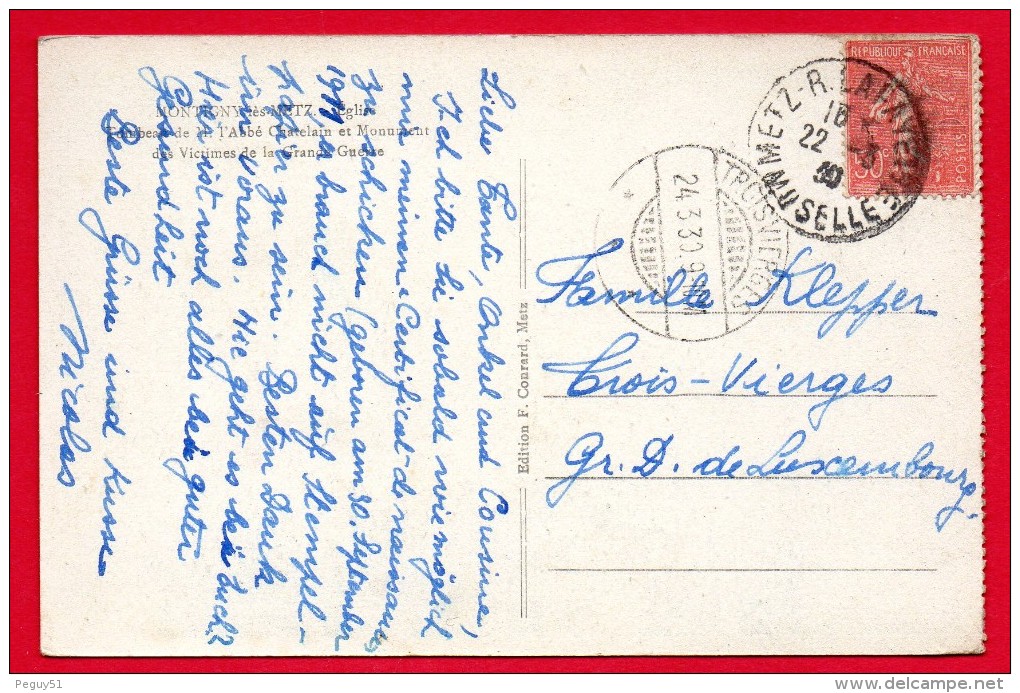 MONTIGNY-lès-METZ. - Eglise
Tombeau de M. l'Abbé Châtelain et Monument
des Victimes de la Grande Guerre
Liebe Tante, Onkel und Cousine,
Ich bitte Sie sobald wie möglich
mir meinen Certificat de naissance
zuschicken (geboren am 30. September
19 brauch nicht auf Stempel-
halter zu sein. Besten Dank
im voraus. Wie geht es bei Euch?
Hier ist noch alles bei guter
Gesundheit
Beste Grüsse und Küsse
Nicolas
Edition F. Conrard, Metz
RÉPUBLIQUE FRANÇAISE
50c
POSTES
METZ-R.
22 -3
30
MOSELLE
TROISVIERGES
24.3.30.9
Famille Klepper
Trois-Vierges
Gr. D. de Luxembourg.
Peguy51
delcampe.net